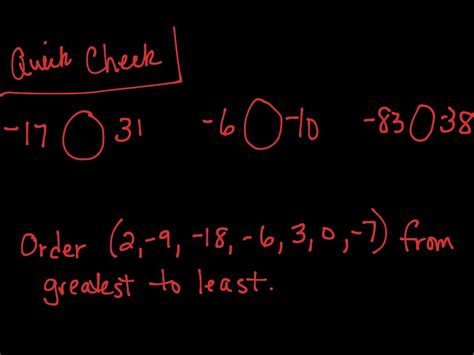 Quick Check
-17 ◯ 31 -6 ◯ -10 -83 ◯ 38
Order (2, -9, -18, -6, 3, 0, -7) from
greatest to least.